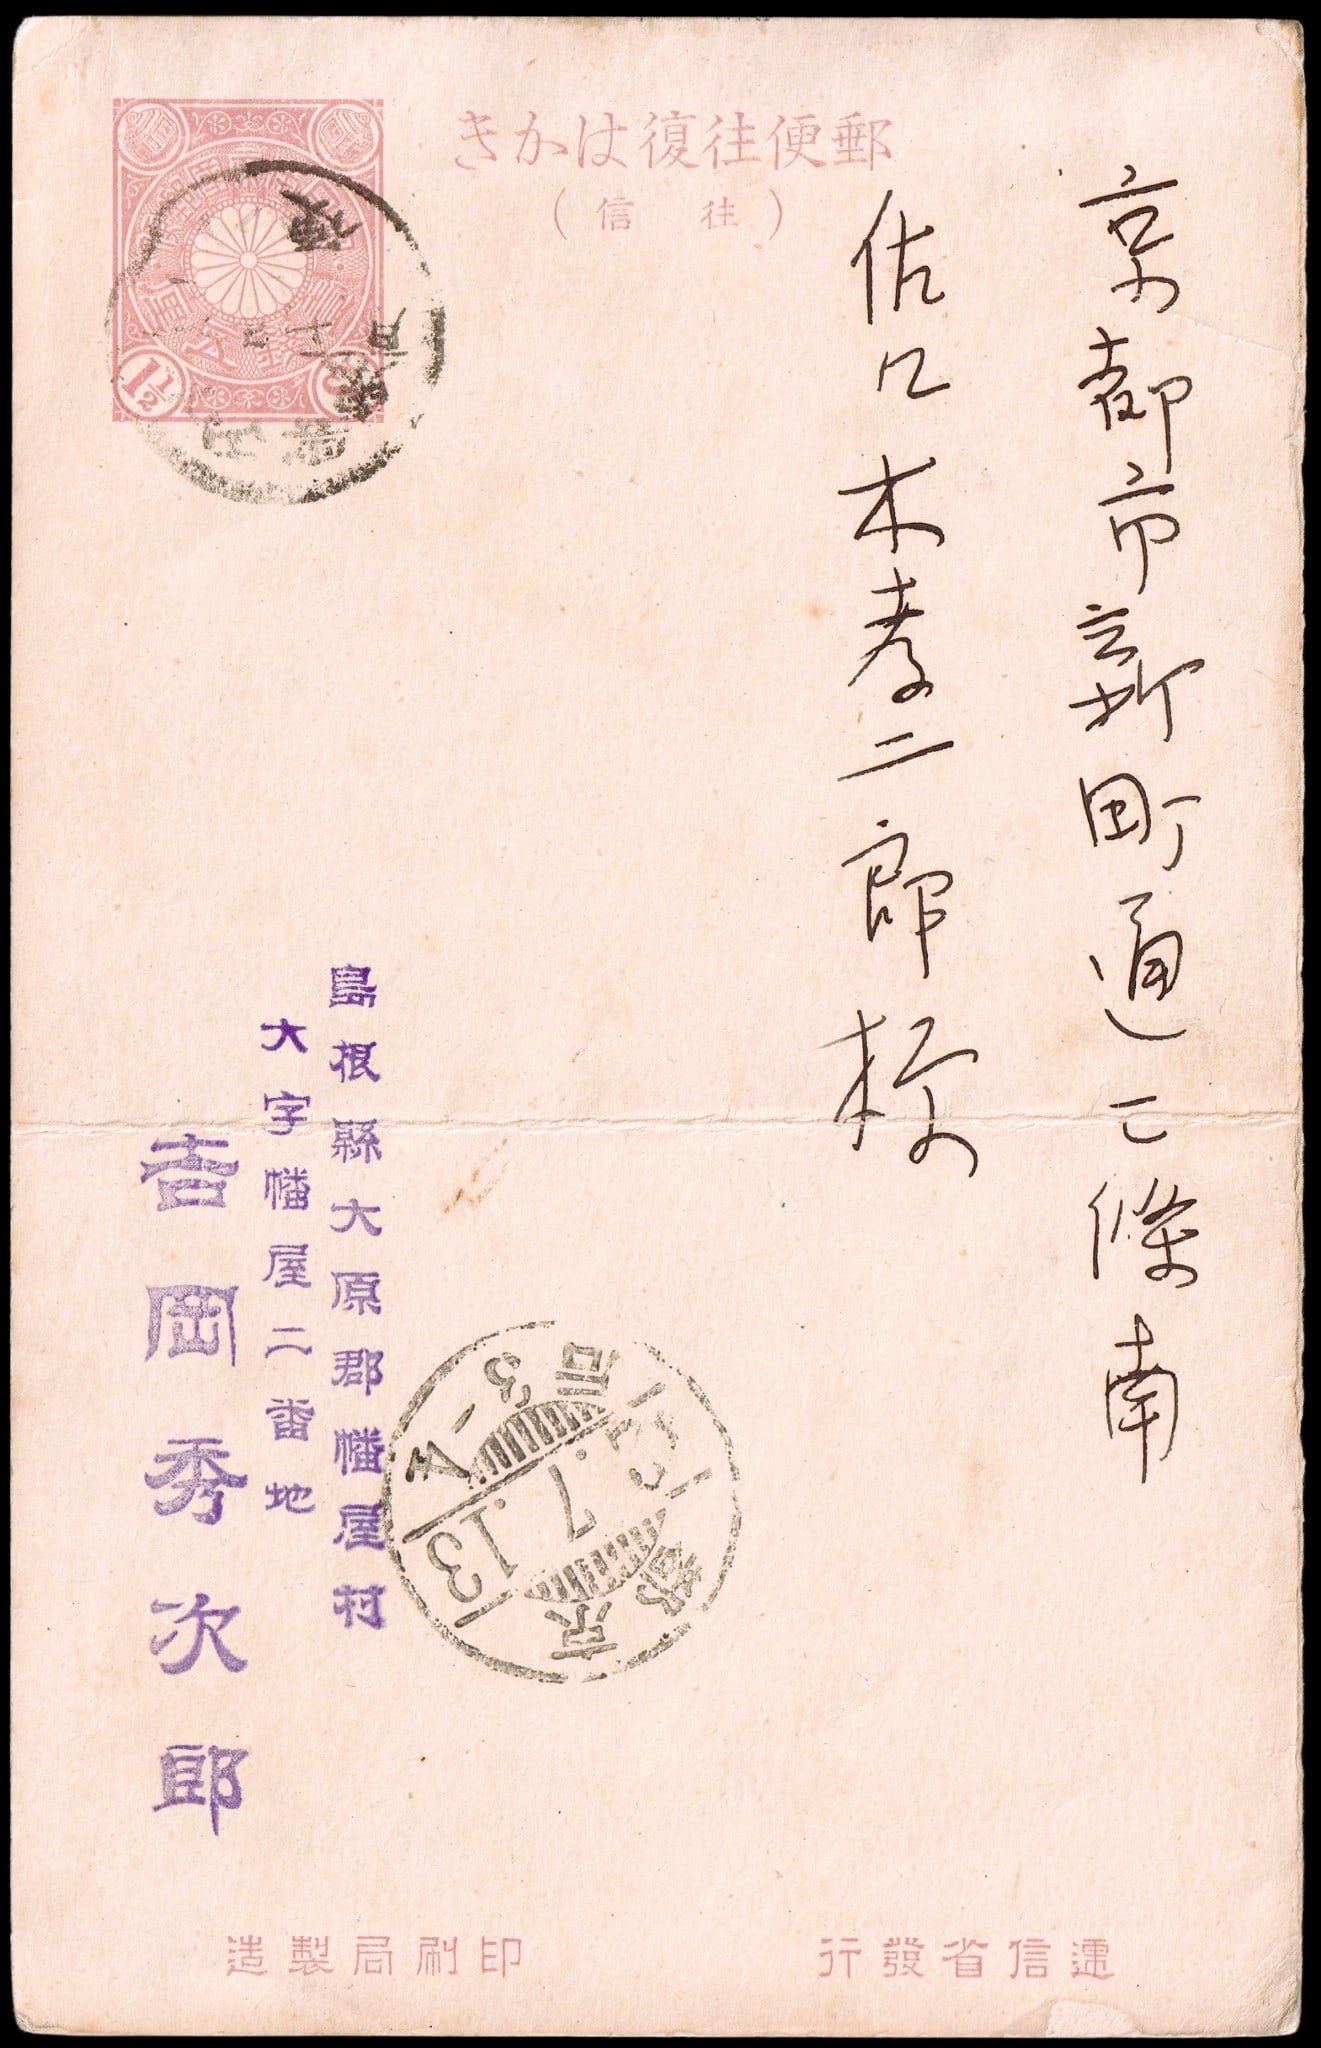 郵便往復はかき
(往信)
京都市新町通二條南
佐々木孝二郎様
島根縣大原郡幡屋村
大字幡屋二番地
吉岡秀次郎
1½
京都
7.13
3-4
遞信省發行
印刷局製造